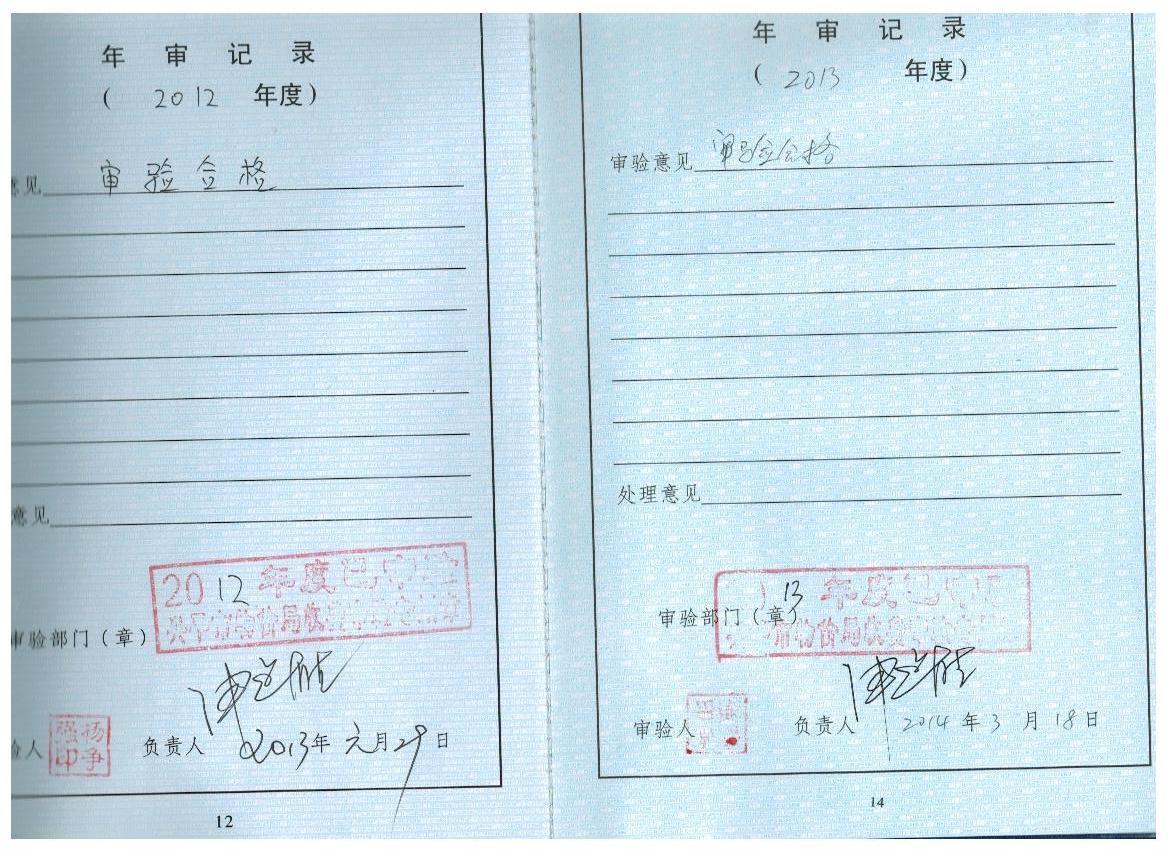 年审记录
( 2012 年度)
意见 审验合格
意见
2012年度已审验
物价局收费
审验部门(章)
强扬
印争
验人 负责人 2013年元月29日
12
年审记录
( 2013 年度)
审验意见 审验合格
处理意见
13年度已审
物价局收费
审验部门(章)
审验人 负责人 2014年3月18日
14